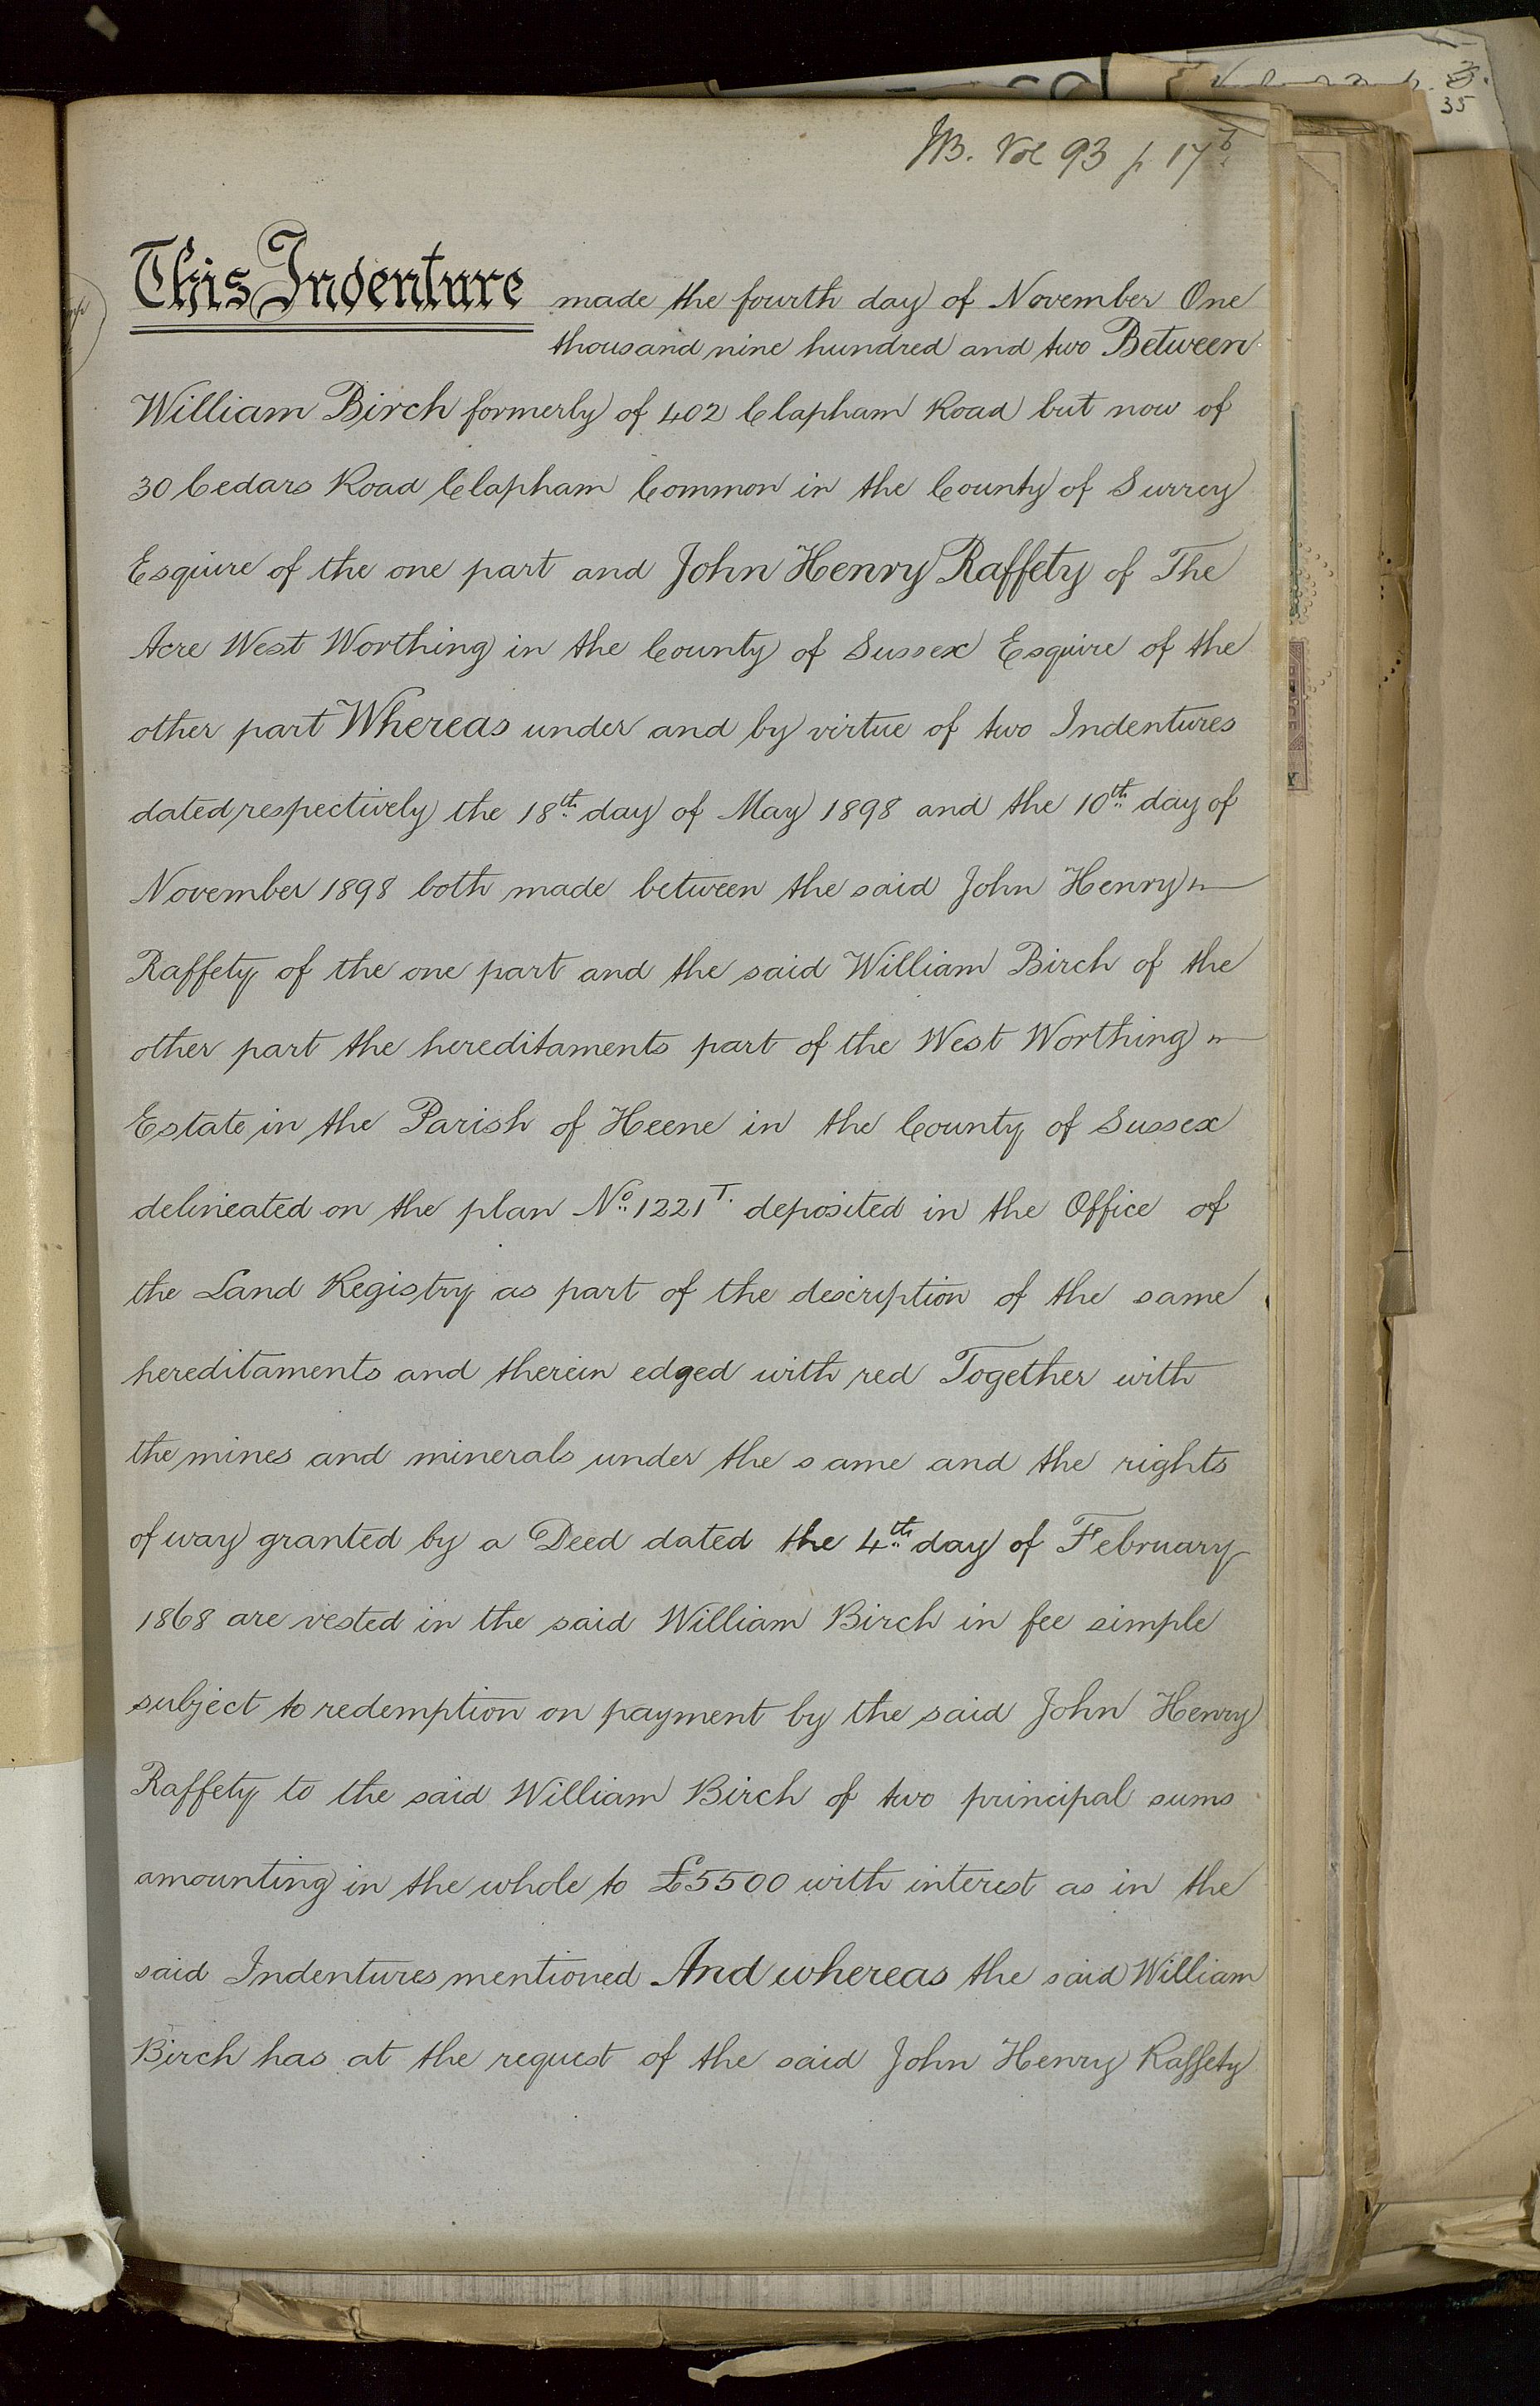 35
Vol 93 p 17
This Indenture made the fourth day of November One
thousand nine hundred and two Between
William Birch formerly of 402 Clapham Road but now of
30 Cedars Road Clapham Common in the County of Surrey
Esquire of the one part and John Henry Raffety of The
Acre West Worthing in the County of Sussex Esquire of the
other part Whereas under and by virtue of two Indentures
dated respectively the 18th day of May 1898 and the 10th day of
November 1898 both made between the said John Henry
Raffety of the one part and the said William Birch of the
other part the hereditaments part of the West Worthing
Estate in the Parish of Heene in the County of Sussex
delineated on the plan No. 1221 T. deposited in the Office of
the Land Registry as part of the description of the same
hereditaments and therein edged with red Together with
the mines and minerals under the same and the rights
of way granted by a Deed dated the 4th day of February
1868 are vested in the said William Birch in fee simple
subject to redemption on payment by the said John Henry
Raffety to the said William Birch of two principal sums
amounting in the whole to £5500 with interest as in the
said Indentures mentioned And whereas the said William
Birch has at the request of the said John Henry Raffety